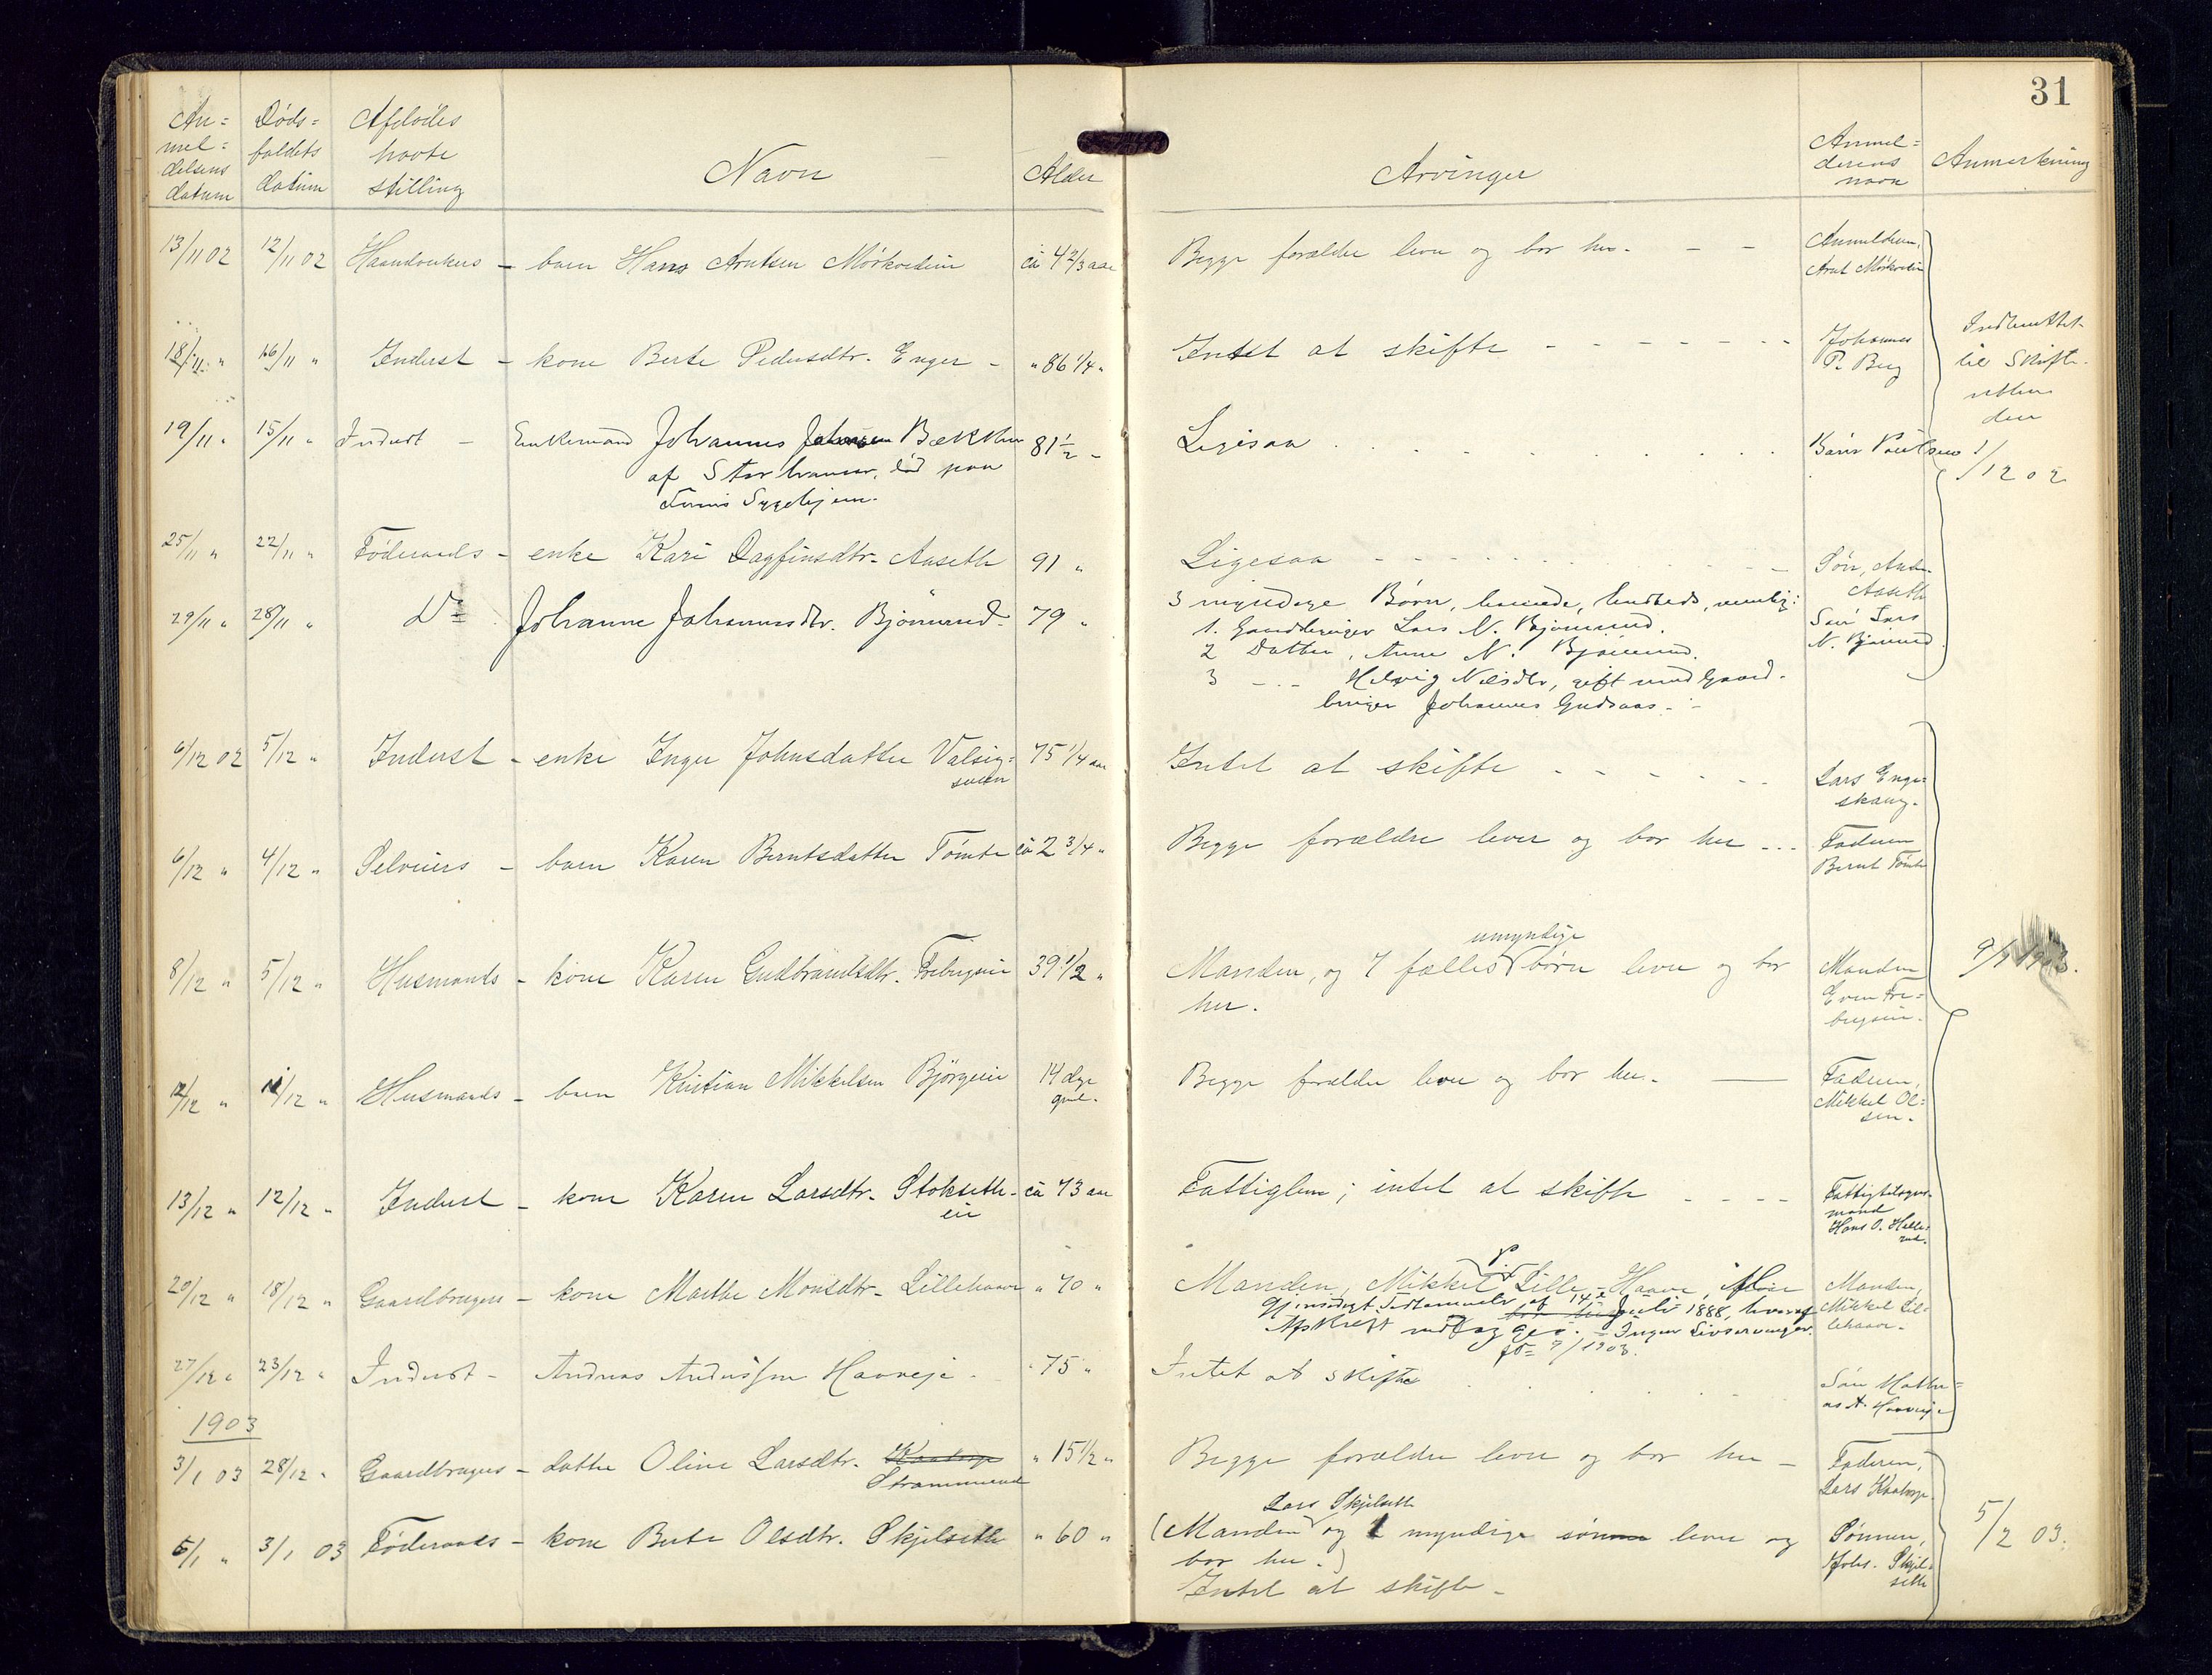 31
An= Døds= Afdødes Anmel=
mel= faldets havte Navn Alder Arvinger derens Anmerkning
delsens datum stilling navn
datum
13/11 02 12/11 02 Haandverkers - barn Hans Arntsen Mörkvedein ca 4 2/3 aar Begge forældre lever og bor her. - - Anmelderen,
Arnt Mörkvedein
18/11 " 16/11 " Inderst - kone Berte Pedersdtr. Enger - " 86 1/4 " Intet at skifte - - - - - - - Johannes
P. Berg
Indberettet
til Skifte-
retten
den
1/12 02
19/11 " 15/11 " Inderst - Enkemand Johannes Johansen Bækken 81 1/2 - Ligesaa
af Storhamar, död paa
Sygehjem.
25/11 " 22/11 " Föderaads - enke Kari Dagfinsdtr. Aaseth 91 " Ligesaa Sön,
Aaseth
29/11 " 28/11 " Do Johanne Johannesdtr. Björnerud. 79 " 3 myndige Børn, nemlig: Sön Lars
1. Gaardbruger Lars N. Bjørnerud. N. Bjørnerud
2 Datter, Anne N. Bjørnerud.
3 - - - Helvig Nilsdtr, gift med Gaard-
bruger Johannes Gudsaas -
6/12 02 5/12 " Inderst - enke Inger Johnsdatter Valsig= 75 1/4 aar Intet at skifte - - - - - - Lars Enge=
sveen skaug.
6/12 " 4/12 " Selveiers - barn Karen Berntsdatter Tömte ca 2 3/4 " Begge forældre lever og bor her - - - Faderen
Bernt Tömte
umyndige
8/12 " 5/12 " Husmands - kone Karen Gudbrandsdtr. 39 1/2 " Manden, og 7 fælles börn lever og bor Manden
her. Even
9/1 1903.
12/12 " 11/12 " Husmands - barn Kristian Mikkelsen Björgeeie 14 dage Begge forældre lever og bor her. Faderen,
gml. Mikkel Ol=
sen.
13/12 " 12/12 " Inderst - kone Karen Larsdtr. Stokseth- ca 73 aar Fattiglem; intet at skifte - - - - Fattigtilsyns-
eie mand
Hans O. Helle=
rud.
20/12 " 18/12 " Gaardbrugers - kone Marthe Monsdtr. Lillehaave " 70 " Manden, Mikkel P. Lille-Haave, ifl. Manden,
gj. insidigt Testamente af 14de Juli 1888, hvoraf Mikkel Lil-
Afskrift - Ingen Livsarvinger. lehaave.
27/12 " 23/12 " Inderst - Andreas Andersen Haaveje - " 75 " Intet at skifte Sön Mathi=
as A. Haaveje
1903
3/1 03 28/12 " Gaardbrugers - datter Oline Larsdtr. " 15 1/2 " Begge forældre lever og bor her - Faderen,
Strammerud Lars
Lars Skjelseth
5/1 " 3/1 03 Föderaads - kone Berte Olsdtr. Skjelseth " 60 " (Manden og 1 myndige sönn lever og Sönnen,
bor her.) Johs. Skjel=
Intet at skifte - seth
5/2 03.